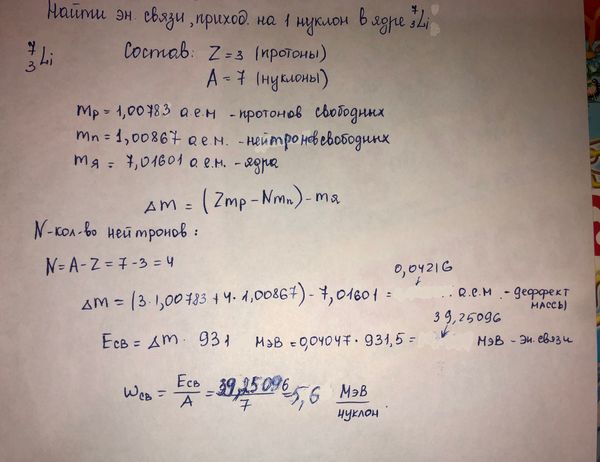 Найти эн. связи, приход. на 1 нуклон в ядре ⁷₃Li
⁷₃Li Состав: Z = 3 (протоны)
A = 7 (нуклоны)
mp = 1,00783 а.е.м - протонов свободных
mn = 1,00867 а.е.м. - нейтронов свободных
mя = 7,01601 а.е.м. - ядра
Δm = (Zmp - Nmn) - mя
N - кол-во нейтронов:
N = A - Z = 7 - 3 = 4
0,04216
Δm = (3·1,00783 + 4·1,00867) - 7,01601 = а.е.м. - деффект массы
39,25096
Eсв = Δm · 931 МэВ = 0,04047 · 931,5 = МэВ - эн. связи
Wсв = Eсв/A = 39,25096/7 = 5,6 МэВ/нуклон.